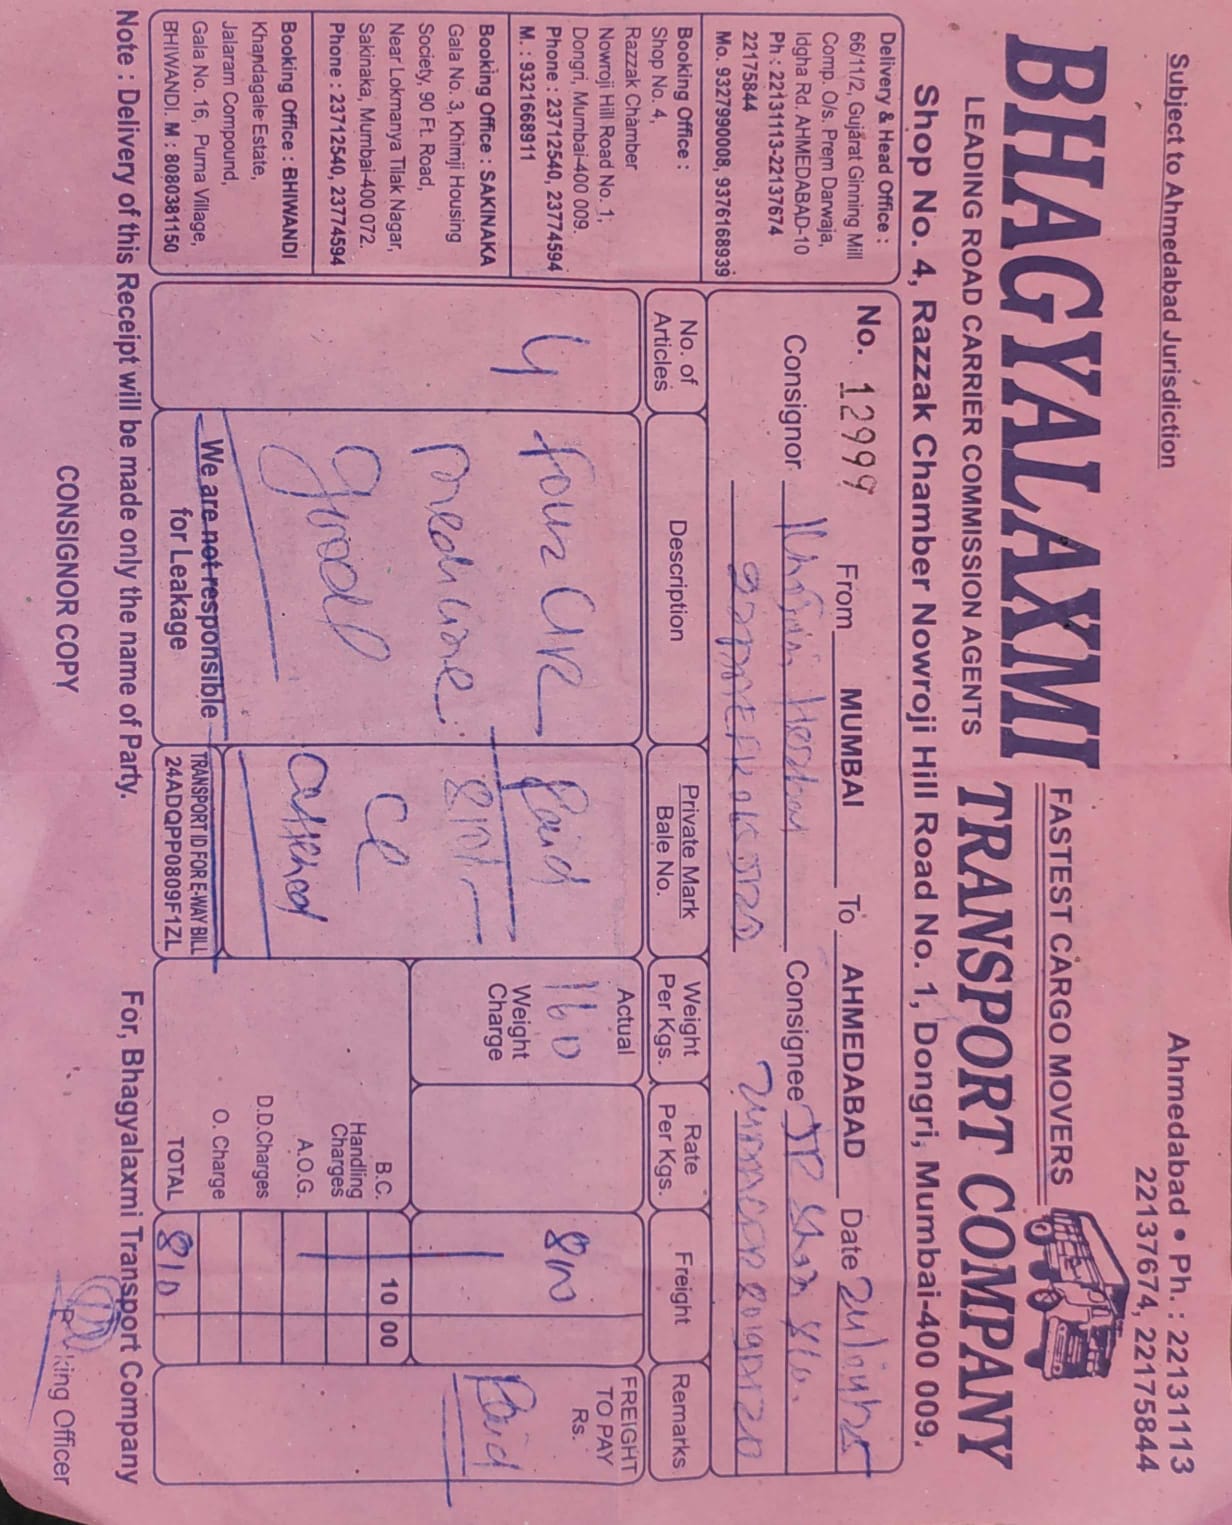 Subject to Ahmedabad Jurisdiction
Ahmedabad • Ph. : 22131113
22137674, 22175844
BHAGYALAXMI TRANSPORT COMPANY
FASTEST CARGO MOVERS
LEADING ROAD CARRIER COMMISSION AGENTS
Shop No. 4, Razzak Chamber Nowroji Hill Road No. 1, Dongri, Mumbai-400 009.
Delivery & Head Office :
66/11/2, Gujarat Ginning Mill
Comp. O/s. Prem Darwaja,
Idgha Rd, AHMEDABAD-10
Ph : 22131113-22137674
22175844
Mo. 9327990008, 9376168939
Booking Office :
Shop No. 4,
Razzak Chamber
Nowroji Hill Road No. 1,
Dongri, Mumbai-400 009.
Phone : 23712540, 23774594
M. : 9321668911
Booking Office : SAKINAKA
Gala No. 3, Khimji Housing
Society, 90 Ft. Road,
Near Lokmanya Tilak Nagar,
Sakinaka, Mumbai-400 072.
Phone : 23712540, 23774594
Booking Office : BHIWANDI
Khandagale Estate,
Jalaram Compound,
Gala No. 16, Purna Village,
BHIWANDI. M : 8080381150
No. 12999 From MUMBAI To AHMEDABAD Date
Consignor Consignee
No. of Articles
Description
Private Mark
Bale No.
Weight Per Kgs.
Rate Per Kgs.
Freight
Remarks
4
Four
medicine
good
Paid
810/-
Actual
160
Weight Charge
800
FREIGHT TO PAY Rs.
Paid
B.C. 10 00
Handling Charges
A.O.G.
D.D.Charges
O. Charge
TOTAL 810
We are not responsible
for Leakage
TRANSPORT ID FOR E-WAY BILL
24ADQPP0809F1ZL
Note : Delivery of this Receipt will be made only the name of Party.
For, Bhagyalaxmi Transport Company
CONSIGNOR COPY
Officer